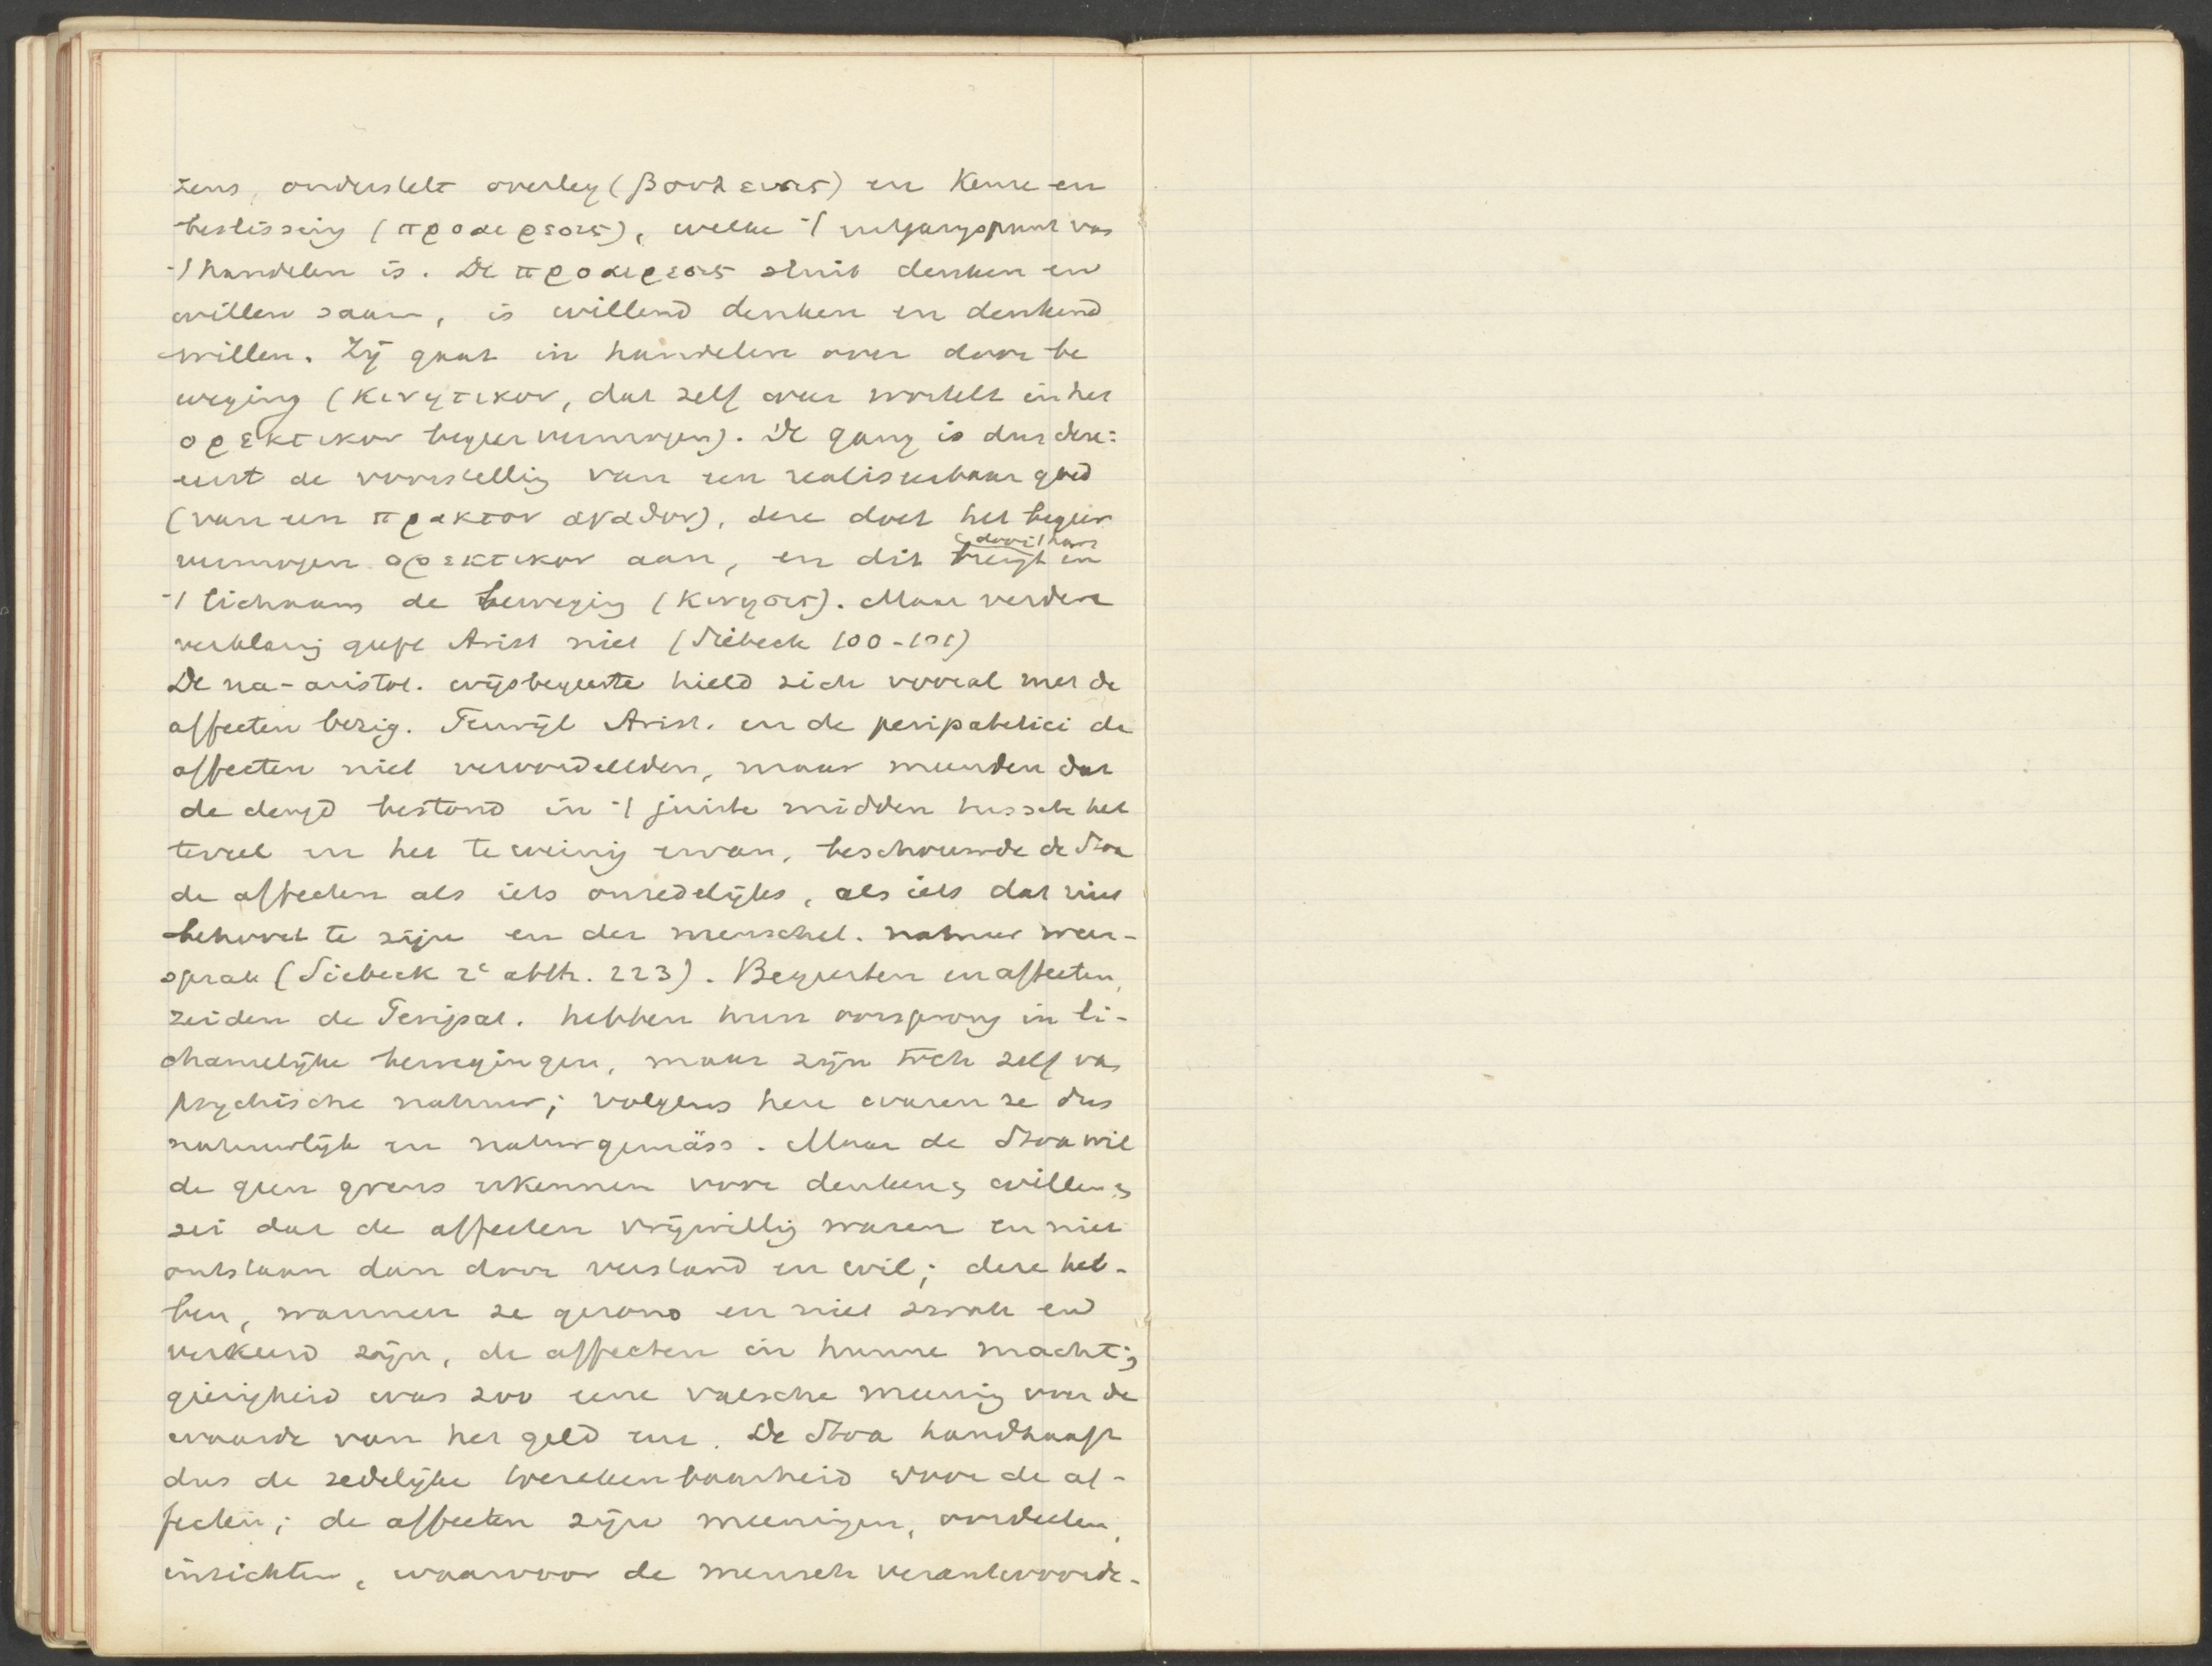 zens, onderstelt overleg (βουλευσις) en keuze en
beslissing (προαιρεσις), welke 't uitgangspunt van
't handelen is. De προαιρεσις sluit denken en
willen saam, is willend denken en denkend
willen. Zij gaat in handelen over door be
weging (κινητικον, dat zelf weer wortelt in het
ορεκτικον begeervermogen). De gang is dus deze:
eerst de voorstelling van een realiseerbaar goed
(van een πρακτον αγαθον), deze doet het begeer
vermogen ορεκτικον aan, en dit brengt in
't lichaam de beweging (κινησις). Maar verdere
verklaring geeft Arist niet (Siebeck 100-101)
De na-aristot. wijsbegeerte hield zich vooral met de
affecten bezig. Terwijl Arist. en de peripatetici de
affecten niet veroordeelden, maar meenden dat
de deugd bestond in 't juiste midden tussche het
teveel en het te weinig ervan, beschouwde de Stoa
de affecten als iets onredelijks, als iets dat niet
behoort te zijn en der menschel. natuur weer-
sprak (Siebeck 2e abth. 223). Begeerten en affecten,
zeiden de Peripat. hebben hun oorsprong in li-
chamelijke bewegingen, maar zijn toch zelf van
psychische natuur; volgens hen waren ze dus
natuurlijk en naturgemäss. Maar de Stoa wil
de geen grens erkennen voor denken & willen &
zei dat de affecten vrijwillig waren en niet
ontstaan dan door verstand en wil; deze heb-
ben, wanneer ze gezond en niet zwak en
verkeerd zijn, de affecten in hunne macht;
gierigheid was zoo eene valsche meening over de
waarde van het geld enz. De Stoa handhaaft
dus de zedelijke toerekenbaarheid voor de af-
fecten; de affecten zijn meeningen, oordeelen,
inzichten, waarvoor de mensch verantwoorde-